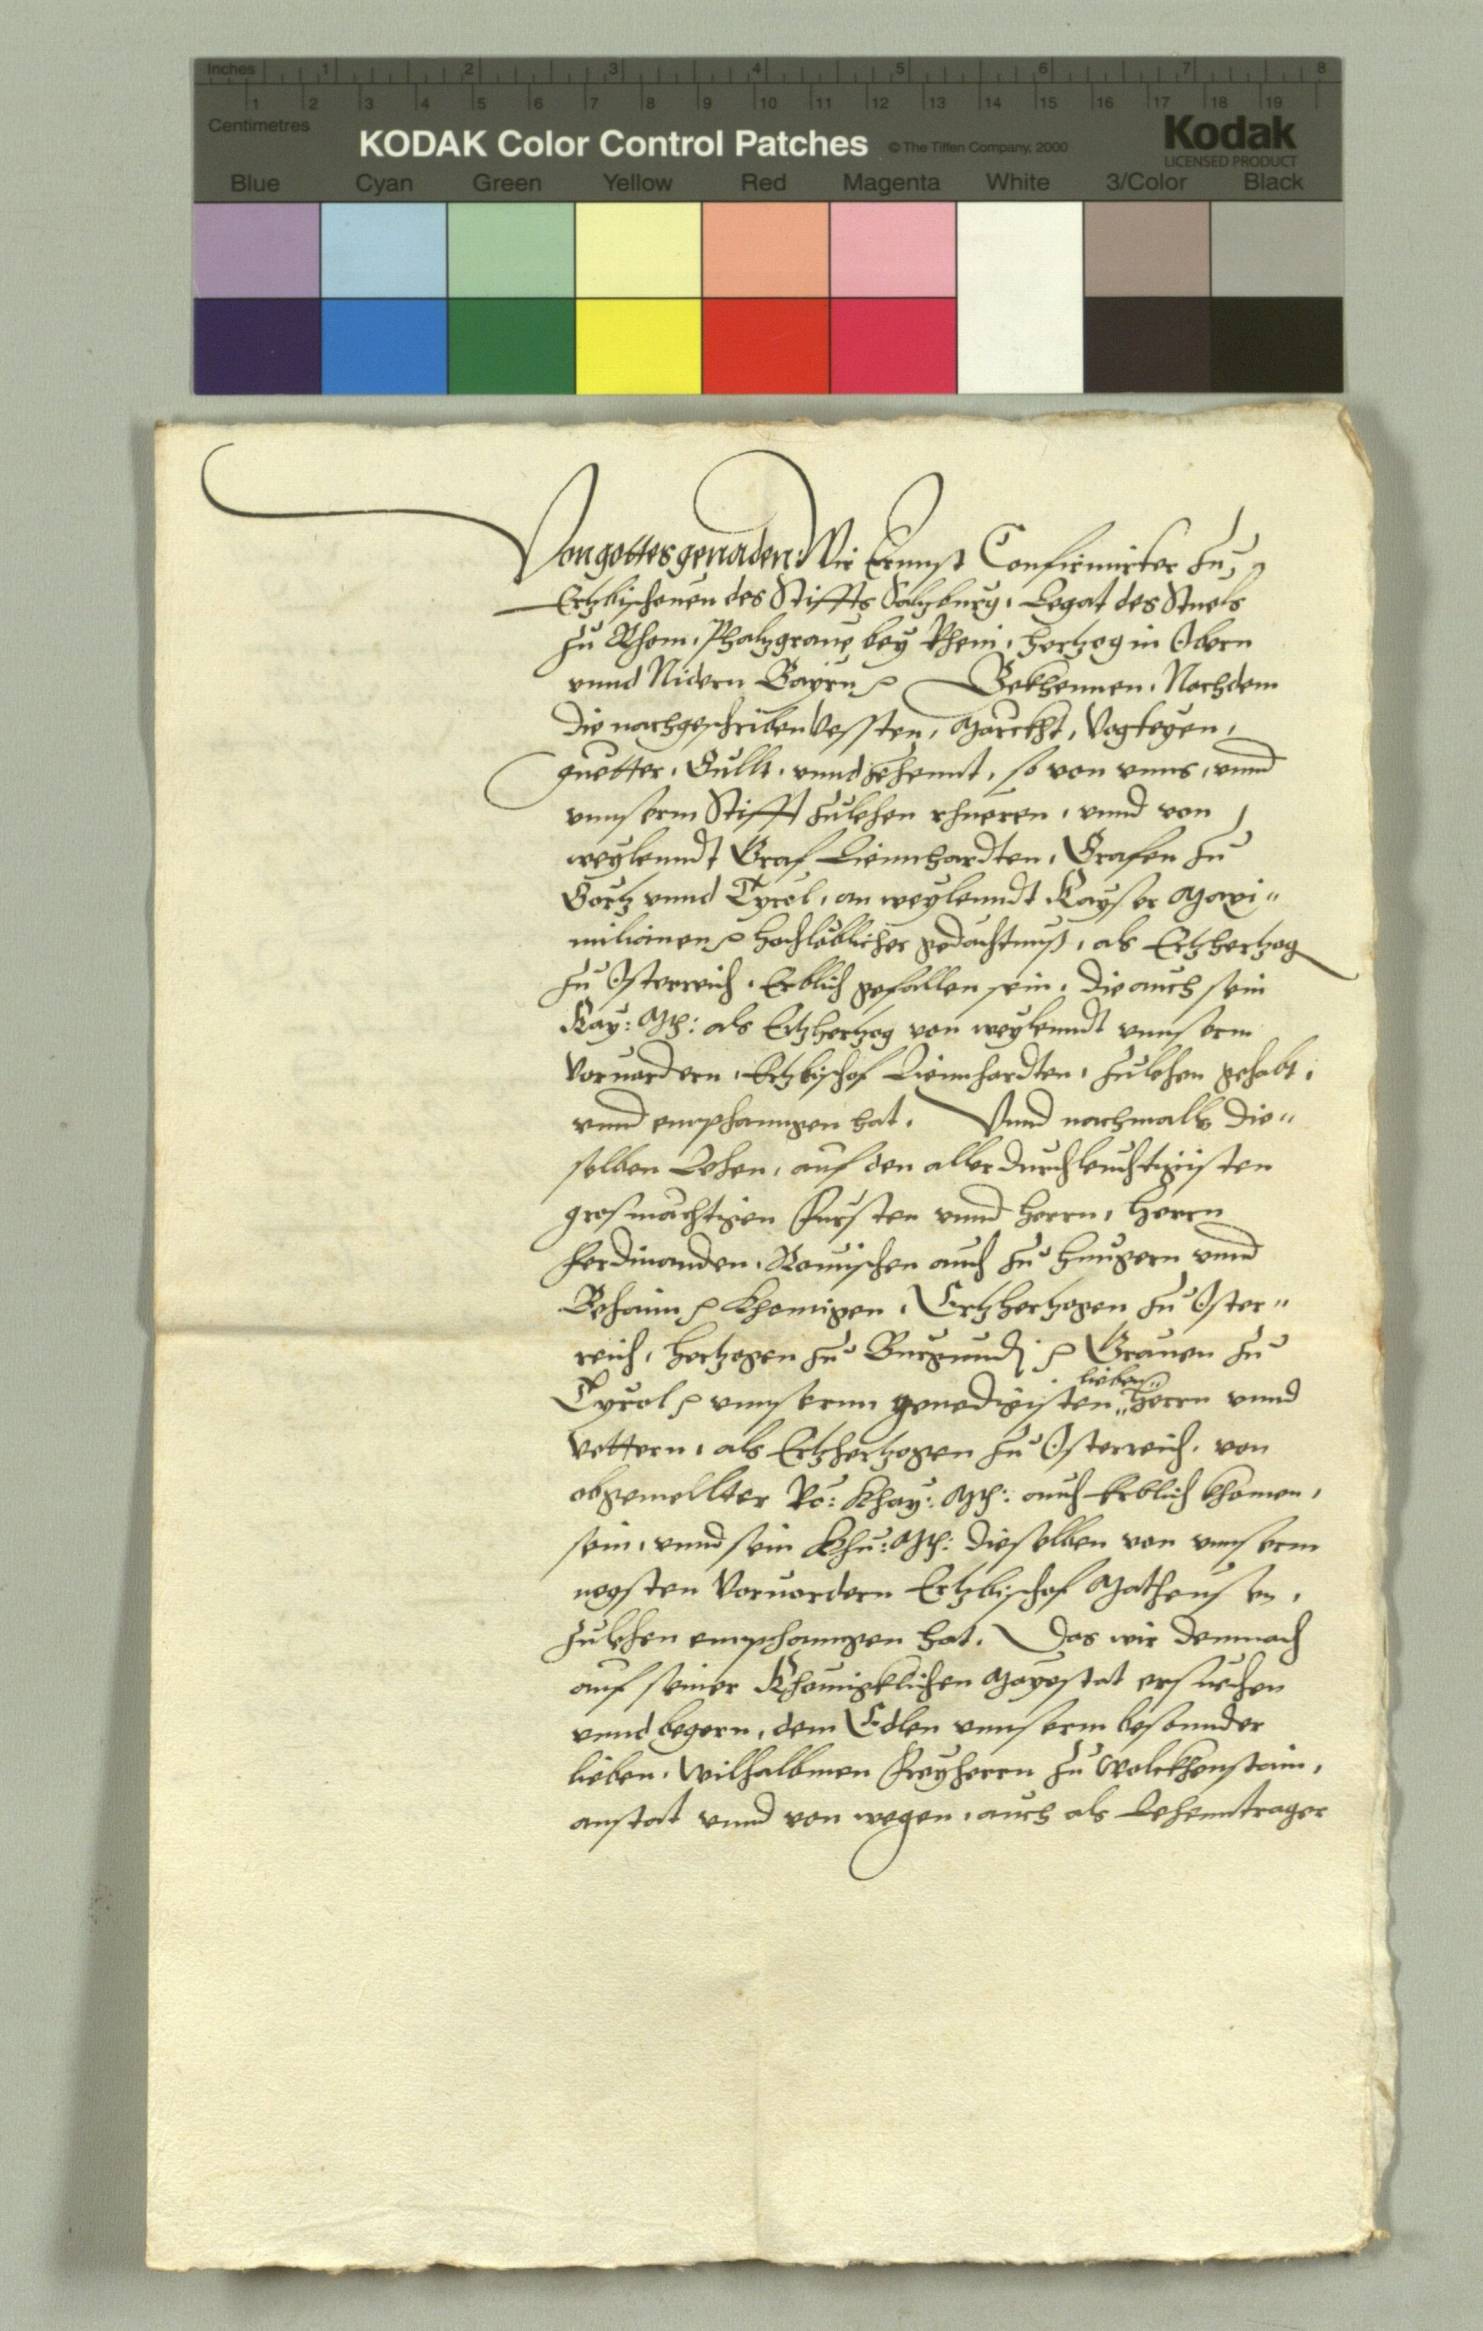 Inches 1 2 3 4 5 6 7 8
1 2 3 4 5 6 7 8 9 10 11 12 13 14 15 16 17 18 19
Centimetres
KODAK Color Control Patches © The Tiffen Company, 2000 Kodak
LICENSED PRODUCT
Blue Cyan Green Yellow Red Magenta White 3/Color Black
Von gottes genaden: Wir Ernnst Confirmirter zu
Ertzbischouen des Stiffts Saltzburg, Legat des Stuels
zu Rhom, Phaltzgraue bey Rhein, Hertzog in Obern
vnnd Nidern Bayrn Bekhennen, Nachdem
die nachgeschriben Vessten, Marckht, Vogteyen,
guetter, Gullt, vnnd Zehennt, so von vnns, vnnd
vnnserm Stifft zulehen rhueren, vnnd von
weylenndt Graf Liennhardten, Grafen zu
Görtz vnnd Tyrol, an weylenndt Kayser Maxi"
milianen hochlöblicher gedächtnuß, als Ertzhertzog
zu Osterreich, Erblich gefallen sein, die auch sein
Kay: Mt: als Ertzhertzog von weylenndt vnnserm
Voruordern, Ertzbischof Liennhardten, zulehen gehabt,
vnnd emphanngen hat. Vnnd nachmalls die"
selben Lehen, auf den allerdurchleuchtigisten
grosmächtigen Fürsten vnnd herrn, Herrn
Ferdinanden, Romischen auch zu Hungern vnnd
Behaim Khonigen, Ertzhertzogen zu Öster"
reich, Hertzogen zu Burgundj Grauen zu
lieben"
Tyrol vnnserm genedigisten "herrn vnnd
Vettern, als Ertzhertzogen zu Österreich, von
obgemellter Rö: Khay: Mt: auch Erblich khomen,
sein, vnnd sein Khu: Mt: dieselben von vnnserm
negsten Voruordern Ertzbischof Matheusen,
zulehen emphanngen hat. Das wir demnach
auf seiner Khonigklichen Mayestat ersuechen
vnnd begern, dem Edlen vnnserm besonnder
lieben, Wilhalbmen Freyherrn zu Wolckhenstain,
anstat vnnd von wegen, auch als Lehenntrager